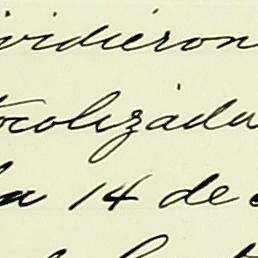 ividieron
tocolizada
la 14 de